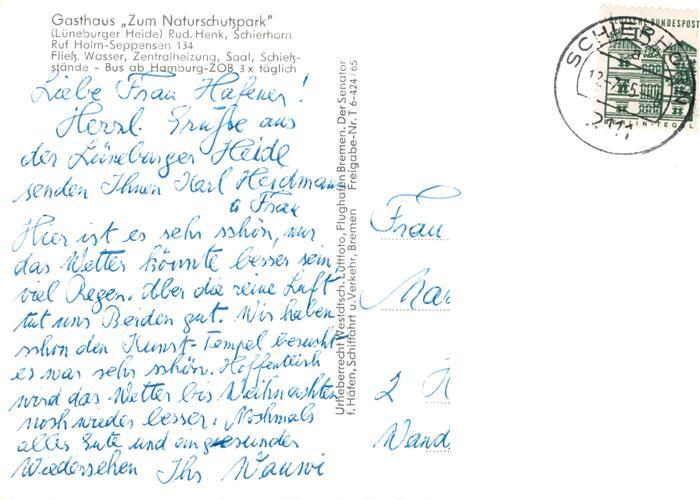 Gasthaus „Zum Naturschutzpark"
(Lüneburger Heide) Rud. Henk, Schierhorn
Ruf Holm-Seppensen 134
Fließ. Wasser, Zentralheizung, Saal, Schieß-
stände - Bus ab Hamburg-ZOB 3 x täglich
Liebe Frau Hafener!
Herzl. Grüße aus
der Lüneburger Heide
senden Ihnen Karl Heidmann
u Frau
Hier ist es sehr schön, nur
das Wetter könnte besser sein
viel Regen. Aber die reine Luft
tut uns Beiden gut. Wir haben
schon den Kunst-Tempel besucht-
es war sehr schön. Hoffentlich
wird das Wetter bis Weihnachten
noch wieder besser. Nochmals
alles Gute und ein gesundes
Wiedersehen Ihr
Urheberrecht Westdtsch. Luftfoto, Flughafen Bremen. Der Senator
f. Häfen, Schiffahrt u. Verkehr, Bremen Freigabe-Nr. T 6-424/65
DEUTSCHE BUNDESPOST
TEGEL
SCHIERHORN
2111
Frau
Mar
2 H
Wand